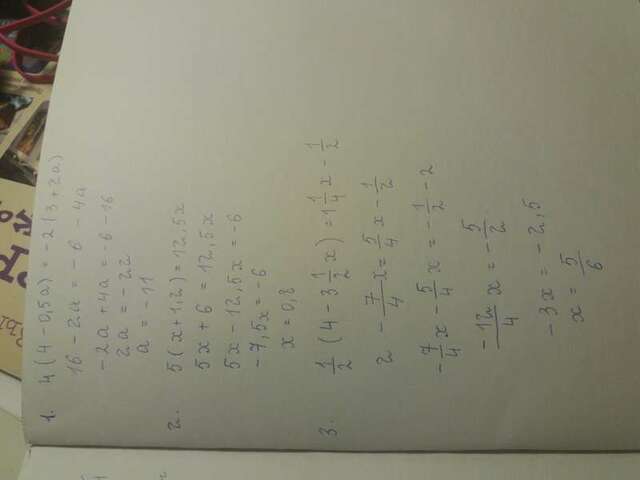 1. 4(4-0,5a) = -2(3+2a)
16 - 2a = -6 - 4a
-2a + 4a = -6 - 16
2a = -22
a = -11
2. 5(x+1,2) = 12,5x
5x + 6 = 12,5x
5x - 12,5x = -6
-7,5x = -6
x = 0,8
3. 1/2 (4 - 3 1/2 x) = 1 1/4 x - 1/2
2 - 7/4 x = 5/4 x - 1/2
-7/4 x - 5/4 x = -1/2 - 2
-12/4 x = -5/2
-3x = -2,5
x = 5/6